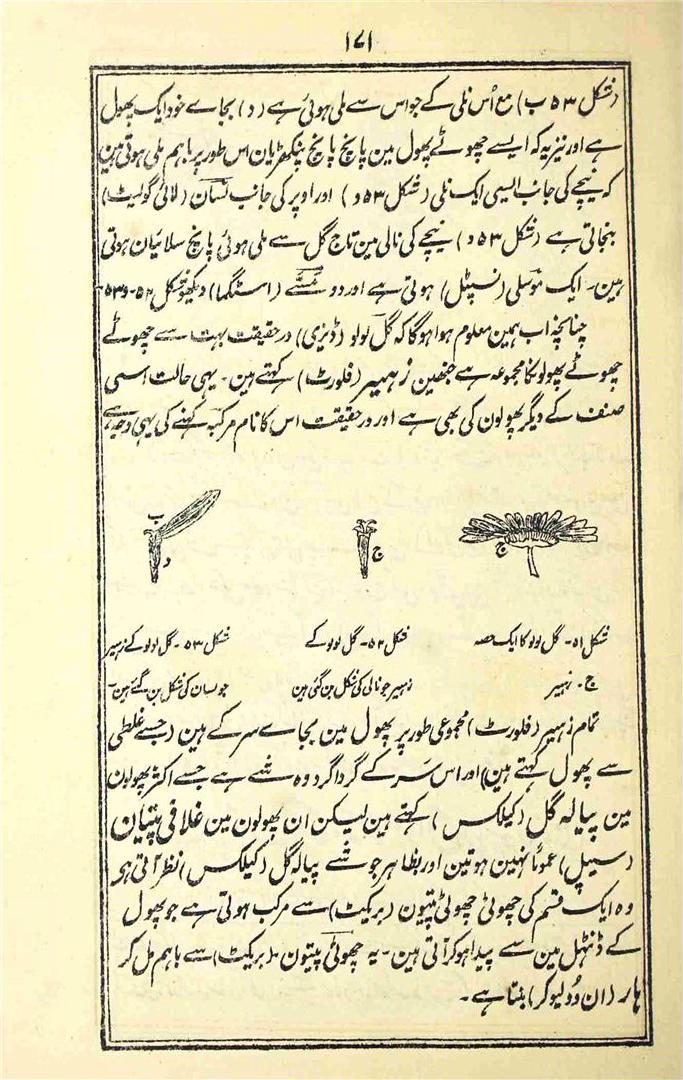 ۱۷۱
(شکل ۵۳ ب) مع اُس نلی کے جو اس سے ملی ہوئی ہے (د) بجاے خود ایک پھول
ہے اور نیز یہ کہ ایسے چھوٹے پھول مین پانچ پانچ پنکھڑیان اس طور پر باہم ملی ہوتی ہین
کہ نیچے کی جانب ایسی ایک نلی (شکل ۵۳ د) اور اوپر کی جانب لسان (لائی گولیٹ)
بنجاتی ہے (شکل ۵۳ د) نیچے کی نالی مین تاج گل سے ملی ہوئی پانچ سلائیان ہوتی
ہین۔ ایک موسلی (پسٹل) ہوتی ہے اور دو (اسٹگما) دیکھو شکل ۵۲ و ۵۳۔
چنانچہ اب ہمین معلوم ہوا ہوگا کہ گل لولو (ڈیزی) در حقیقت بہت سے چھوٹے
چھوٹے پھولونکا مجموعہ ہے جنھین زہیر (فلورٹ) کہتے ہین۔ یہی حالت اسی
صنف کے دیگر پھولون کی بھی ہے اور در حقیقت اس کا نام مرکبہ کہنے کی یہی وجہ ہے
ب
د
ج
ج
شکل ۵۱۔ گل لولو کا ایک حصہ
ج۔ زہیر
شکل ۵۲۔ گل لولو کے
زہیر جو نالی کی شکل بن گئی ہین
شکل ۵۳۔ گل لولو کے زہیر
جو لسان کی شکل بن گئے ہین۔
تمام زہیر (فلورٹ) مجموعی طور پر پھول مین بجاے سر کے ہین (جسے غلطی
سے پھول کہتے ہین) اور اس سَر کے گرداگرد وہ شے ہے جسے اکثر پھولون
مین پیالہ گل (کیلکس) کہتے ہین لیکن ان پھولون مین غلافی پتیان
(سیپل) عموماً نہین ہوتین اور بظاہر جو شے پیالہ گل (کیلکس) نظر آتی ہو
وہ ایک قسم کی چھوٹی چھوٹی پتیون (بریکٹ) سے مرکب ہوتی ہے جو پھول
کے ڈنٹھل مین سے پیدا ہو کر آتی ہین۔ یہ چھوٹی پتیون۔ (بریکٹ) سے باہم مل کر
ہار (ان وولیوکر) بنتا ہے۔